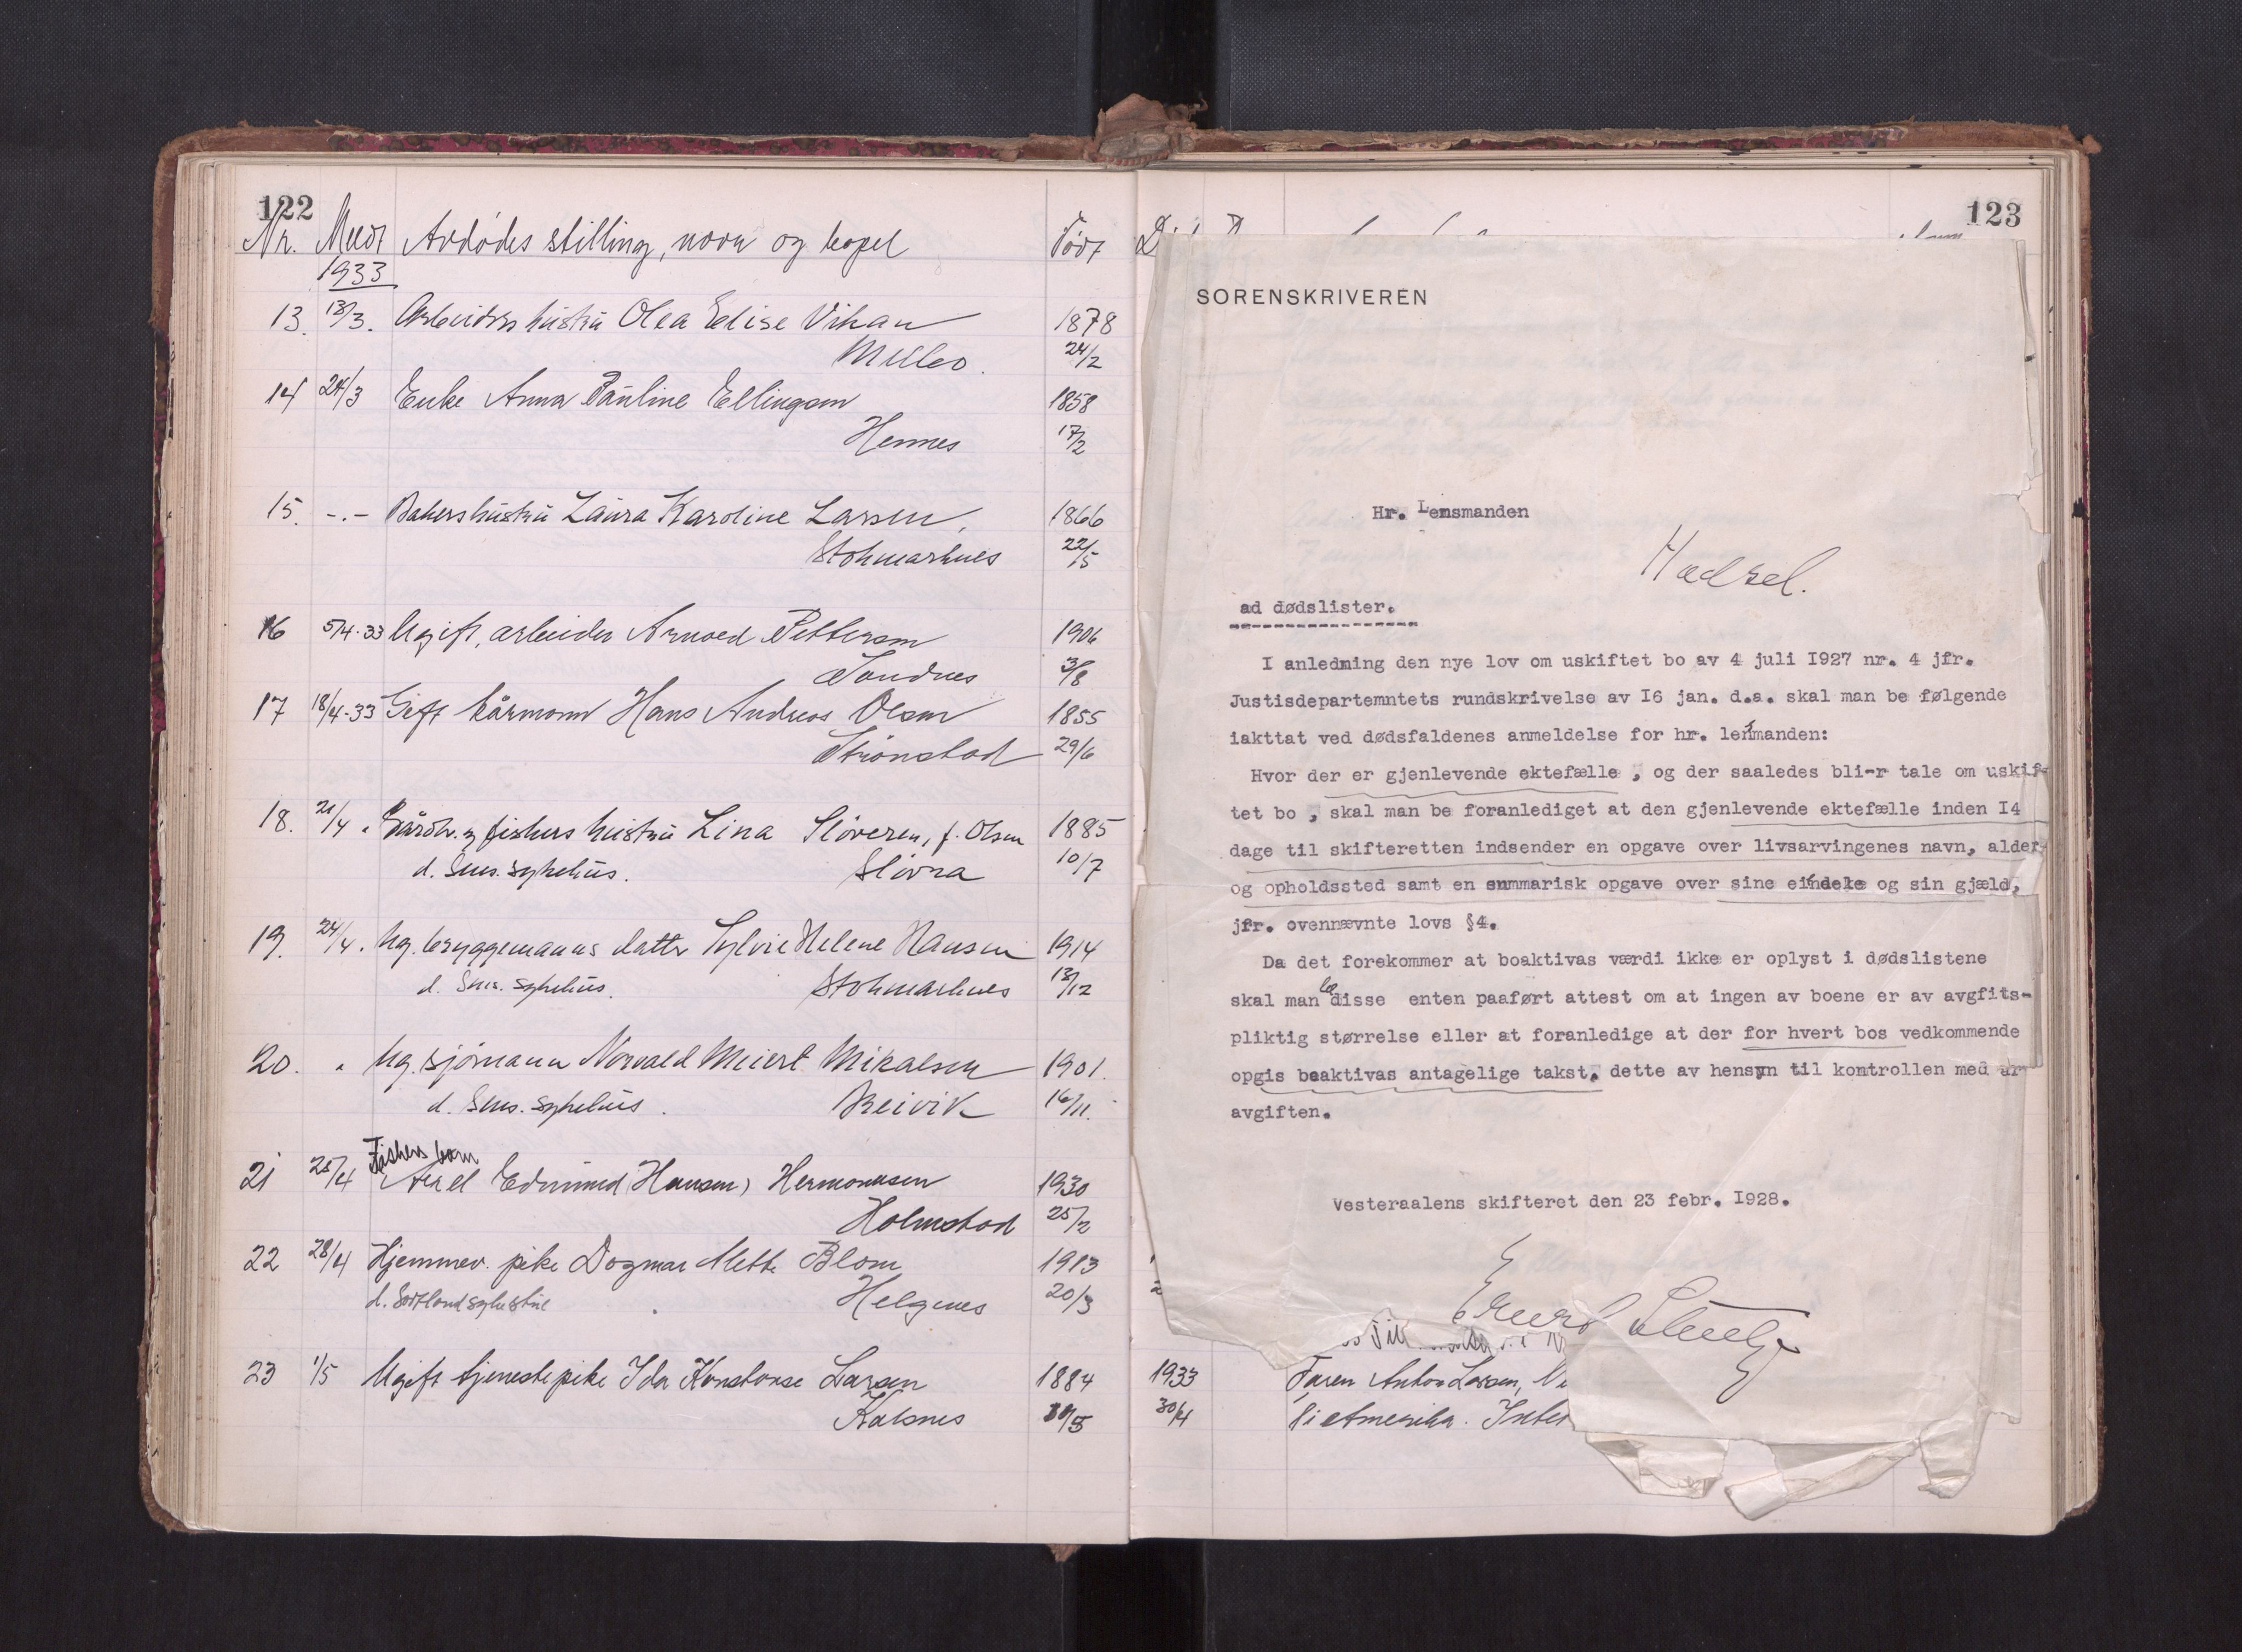 122
Nr. Meldt Avdødes stilling, navn og bopel Født
1933
13. 13/3. Arbeiders hustru Olea Elise Vihan 1878
Melbo. 24/2
14 24/3 Enke Anna Pauline Ellingsen 1858
Hennes 17/2
15. -.- Bakers hustru Laura Karoline Larsen, 1866
Stokmarknes 22/5
16 5/4-33 Ugift, arbeider Arnold Pettersen 1906
Sandnes 3/8
17 18/4-33 Gift kårmann Hans Andreas Olsen 1855
Strønstad 29/6
18. 21/4 . Gårdbr. og fiskers hustru Lina Slåveren, f. Olsen 1885
d. Stms. sykehus. 10/7
19. 24/4. Ug. bryggemanns datter Sylvie Helene Hansen 1914
d. Stms. sykehus. Stokmarknes 13/12
20. " Ug. sjømann Norvald Meiert Mikalsen 1901.
d. Stms. sykehus. Breivik 16/11.
Fiskers barn
21 25/4 Aksel Edmund (Hansen) Hermansen 1930
Holmstad 25/2
22 28/4 Hjemmev. pike Dagmar Mette Blom 1913
d. Sortland sykestue Helgenes 20/3
23 1/5 Ugift tjenestepike Ida Konstanse Larsen 1884
Kaksnes
123
SORENSKRIVEREN
Hr. Lensmanden
Hadsel.
ad dødslister.
-----------------
I anledning den nye lov om uskiftet bo av 4 juli I927 nr. 4 jfr.
Justisdepartemntets rundskrivelse av I6 jan. d.a. skal man be følgende
iakttat ved dødsfaldenes anmeldelse for hr. lenmanden:
Hvor der er gjenlevende ektefælle , og der saaledes bli-r tale om uskif-
tet bo , skal man be foranlediget at den gjenlevende ektefælle inden I4
dage til skifteretten indsender en opgave over livsarvingenes navn, alder,
og opholdssted samt en summarisk opgave over sine eindele og sin gjæld,
jfr. ovennævnte lovs §4.
Da det forekommer at boaktivas værdi ikke er oplyst i dødslistene
skal man be disse enten paaført attest om at ingen av boene er av avgfits-
pliktig størrelse eller at foranledige at der for hvert bos vedkommende
opgis boaktivas antagelige takst. dette av hensyn til kontrollen med ar-
avgiften.
Vesteraalens skifteret den 23 febr. I928.
1933 Faren Anton Larsen,
30/4 i Amerika.